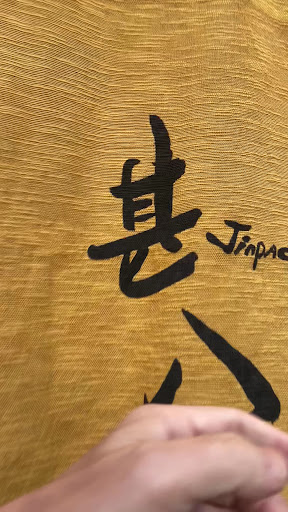 甚八
Jinpac